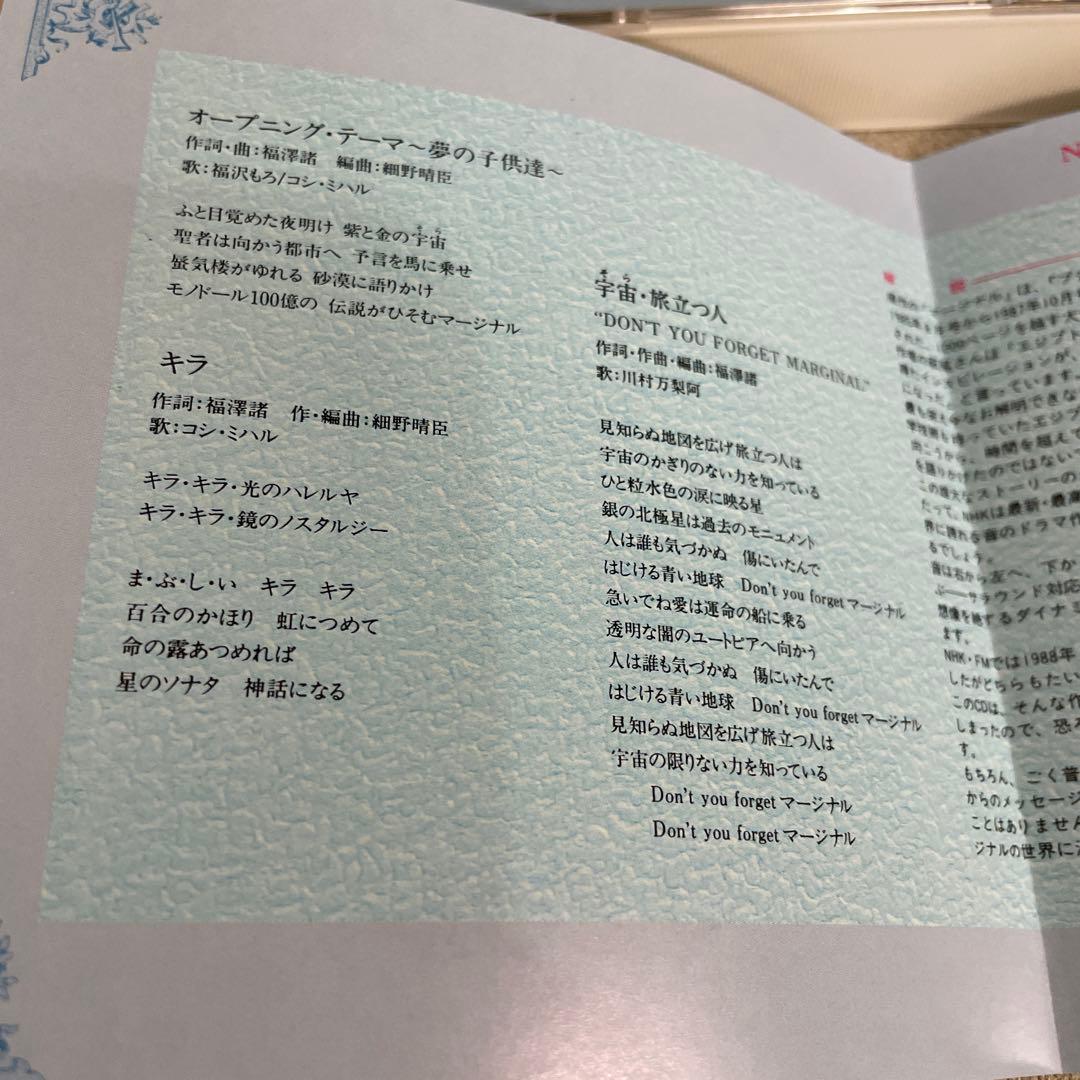 オープニング・テーマ〜夢の子供達〜
作詞・曲：福澤諸　編曲：細野晴臣
歌：福沢もろ/コシ・ミハル
ふと目覚めた夜明け 紫と金の宇宙
聖者は向かう都市へ 予言を馬に乗せ
蜃気楼がゆれる 砂漠に語りかけ
モノドール100億の 伝説がひそむマージナル
キラ
作詞：福澤諸　作・編曲：細野晴臣
歌：コシ・ミハル
キラ・キラ・光のハレルヤ
キラ・キラ・鏡のノスタルジー
ま・ぶ・し・い　キラ　キラ
百合のかほり　虹につめて
命の露あつめれば
星のソナタ　神話になる
そら
宇宙・旅立つ人
"DON'T YOU FORGET MARGINAL"
作詞・作曲・編曲：福澤諸
歌：川村万梨阿
見知らぬ地図を広げ旅立つ人は
宇宙のかぎりのない力を知っている
ひと粒水色の涙に映る星
銀の北極星は過去のモニュメント
人は誰も気づかぬ　傷にいたんで
はじける青い地球　Don't you forgetマージナル
急いでね愛は運命の船に乗る
透明な闇のユートピアへ向かう
人は誰も気づかぬ　傷にいたんで
はじける青い地球　Don't you forgetマージナル
見知らぬ地図を広げ旅立つ人は
宇宙の限りない力を知っている
Don't you forgetマージナル
Don't you forgetマージナル
号から1987年10月
00ページを越す大
さんは「エジプト
ピレーションが、
と言っています。
なお解明できな
っていたエジプ
時間を越えて
けたのではないで
ストーリーの
NHKは最新・最高
音のドラマ作
るでしょう。
音は右から左へ、下か
ぶ——サラウンド対応
想像を絶するダイナミ
ます。
NHK・FMでは1988年
したがどちらもたい
このCDは、そんな作
しまったので、恐る
す。
もちろん、ごく普
からのメッセージ
ことはありません
ジナルの世界に